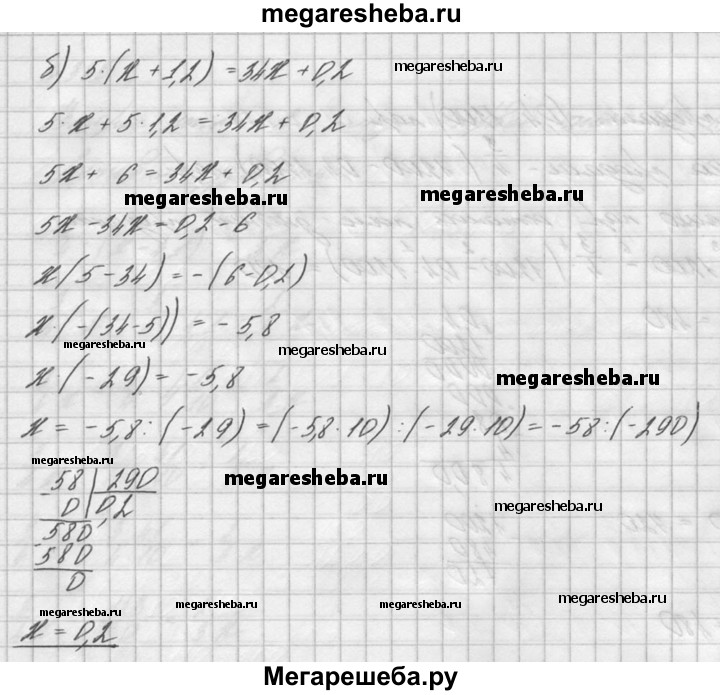 megaresheba.ru
б) 5·(x+1,2)=34x+0,2
megaresheba.ru
5·x+5·1,2=34x+0,2
5x+ 6=34x+0,2
megaresheba.ru
megaresheba.ru
5x-34x=0,2-6
x(5-34)=-(6-0,2)
x·(-(34-5))=-5,8
megaresheba.ru
megaresheba.ru
x·(-29)=-5,8
megaresheba.ru
x=-5,8:(-29)=(-5,8·10):(-29·10)=-58:(-290)
megaresheba.ru
-58 290
megaresheba.ru
0 0,2
megaresheba.ru
-580
580
0
megaresheba.ru
megaresheba.ru
megaresheba.ru
megaresheba.ru
x=0,2
Мегарешеба.ру